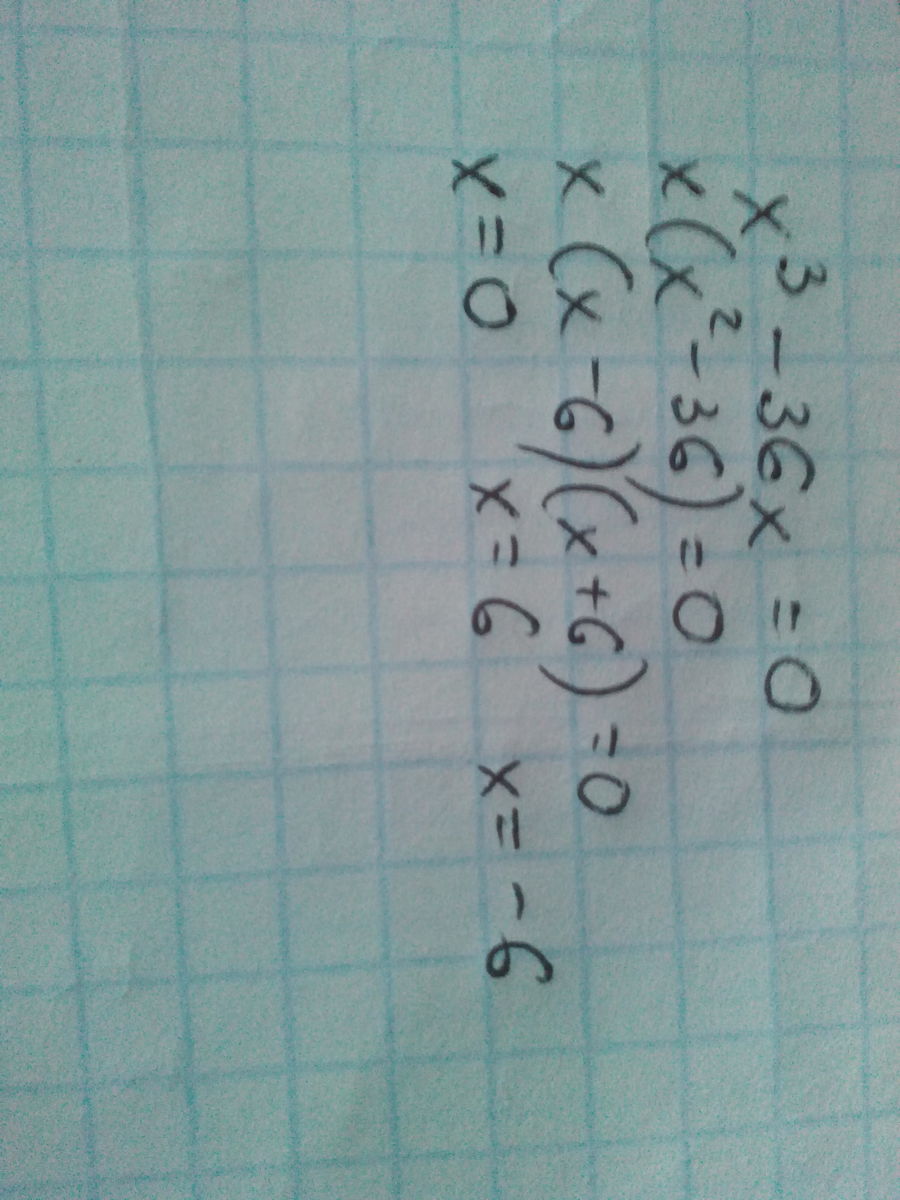 x³ - 36x = 0
x(x² - 36) = 0
x(x - 6)(x + 6) = 0
x = 0 x = 6 x = -6